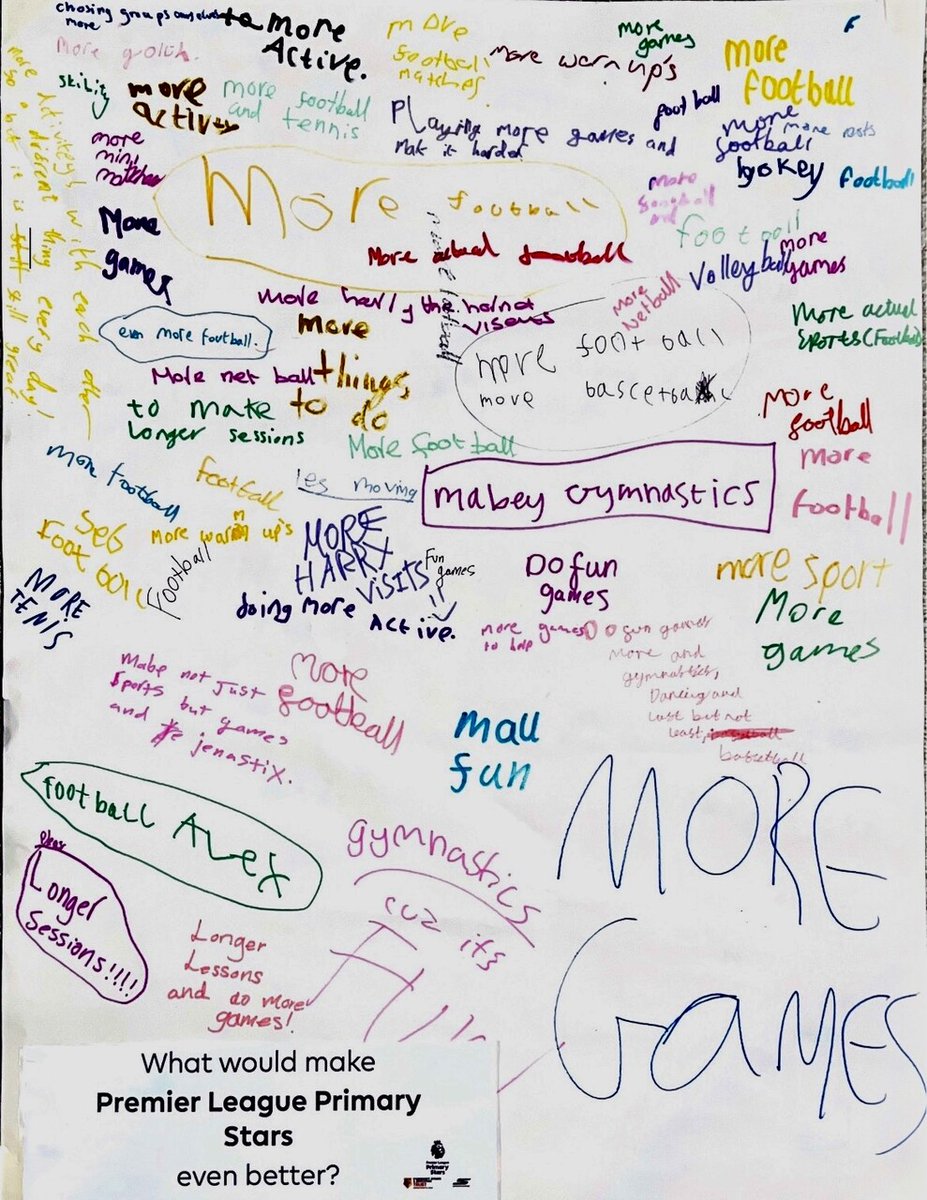 chosing groups ourselves
more
to more
Active.
more
football
matches.
more
games
More warm up's
more
football
More golth.
skility
more
active
more football
and tennis
Playing more games and
Make it harder
football
more
football
more
hokey
football
more
mini
matches
More
games
More football
More actual football
more
football
Volleyball
more
games
more
Netball
More activiteys with each other
a difrent thing every day!
so a bit it is still great
even more football.
more harry the hornet
viseuts
more
things,
to do
More net ball
to make
Longer sessions
more foot ball
more bascetball
More actual
sports (Football)
More
football
More Football
more football
football
les moving
mabey gymnastics
more
football
More warm up's
football
MORE
HARRY
VISITS
!!
Fun
games
MORE
TENIS
doing more Active.
Do fun
games
more games
to help
more sport
More
games
Do fun games
more and
gymnastics,
Dancing and
last but not
least, basketball
basketball
Mabe not just
sports but games
and jenastix.
more
football
mall
fun
football Alex
Longer
Sessions!!!!
gymnastics
cuz its
Fun
Longer
Lessons
and do more
games!
MORE
GAMES
What would make
Premier League Primary
Stars
even better?
Premier League
Primary
Stars